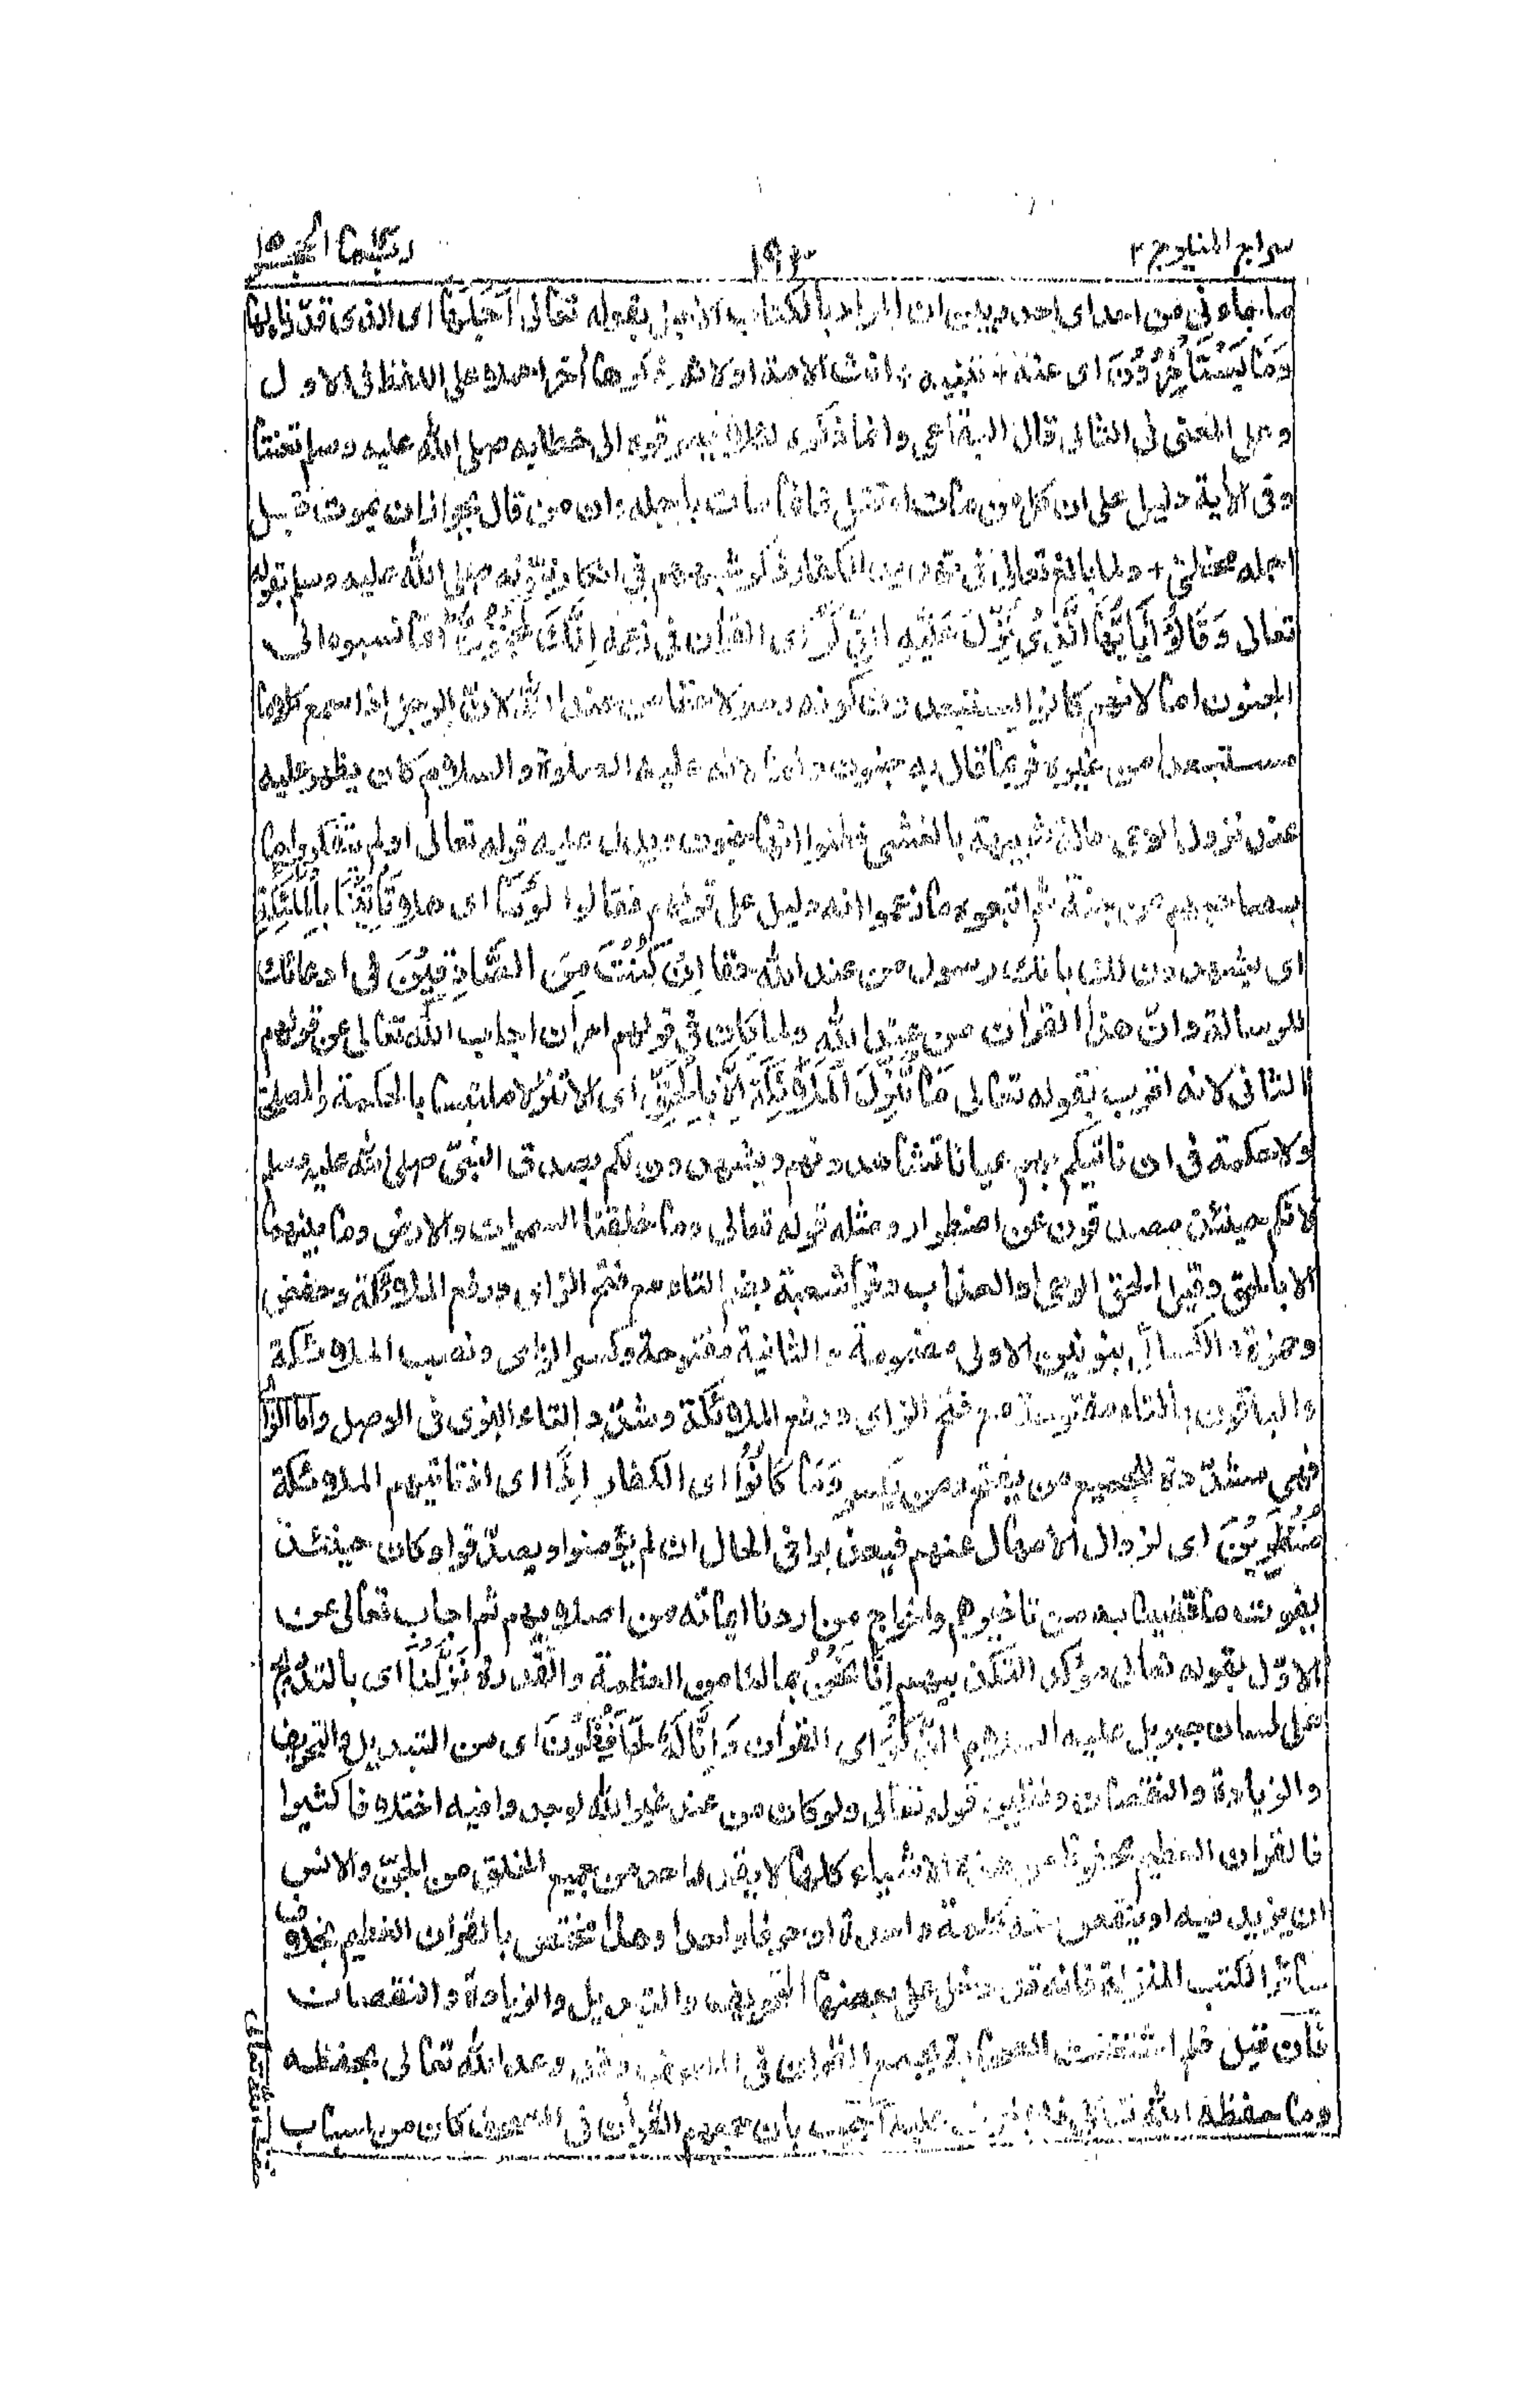 سراج المنير ج ٢
١٩٤
ربما الحجر ١٥
ما جاءنى من احد اى احد وبين ان المراد بالكتاب الاجل بقوله تعالى اَجَلَهَا اى الذى قدرناه لها
وَمَا يَسْتَأْخِرُوْنَ اى عنه + تنبيه + انث الامة اولا ثم ذكرها آخرا حملا على اللفظ فى الاول
وعلى المعنى فى الثانى قال البقاعى وانما ذكره لئلا يصرفوه الى خطابه صلى الله عليه وسلم تعنتا
وفى الاية دليل على ان كل من مات او قتل فانما مات باجله وان من قال يجوز ان يموت قبل
اجله مخطئ + ولما بالغ تعالى فى تهديد الكفار ذكر شبههم فى انكار نبوته صلى الله عليه وسلم بقوله
تعالى وَقَالُوْا يَا اَيُّهَا الَّذِىْ نُزِّلَ عَلَيْهِ الذِّكْرُ اى القرآن فى زعمه اِنَّكَ لَمَجْنُوْنٌ انما نسبوه الى
الجنون اما لانهم كانوا يستبعدون كونه رسولا حقا من عند الله لان الرجل اذا سمع كلاما
مستبعدا من غيره فربما قال به جنون واما لانه عليه الصلوة والسلام كان يظهر عليه
عند نزول الوحى حالة شبيهة بالغشى فظنوا انها جنون ويدل عليه قوله تعالى اولم يتفكروا ما
بصاحبهم من جنة ثم اتبعوه ما زعموا انه دليل على قولهم فقالوا لَوْمَا اى هلا تَأْتِيْنَا بِالْمَلٰٓئِكَةِ
اى يشهدون لك بانك رسول من عند الله حقا اِنْ كُنْتَ مِنَ الصَّادِقِيْنَ فى ادعائك
للرسالة وان هذا القرآن من عند الله ولما كان فى قولهم امران اجاب الله تعالى عن قولهم
الثانى لانه اقرب بقوله تعالى مَا نُنَزِّلُ الْمَلٰٓئِكَةَ اِلَّا بِالْحَقِّ اى الا تنزلا ملتبسا بالحكمة والمصلحة
ولا حكمة فى ان تاتيكم بهم عيانا تشاهدونهم ويشهدون لكم بصدق النبى صلى الله عليه وسلم
لانكم حينئذ مصدقون عن اضطرار ومثله قوله تعالى وما خلقنا السموات والارض وما بينهما
الا بالحق وقيل الحق الوحى او العذاب وقرأ شعبة بضم التاء مع فتح الزاى ورفع الملائكة وحفص
وحمزة والكسائى بنونين الاولى مضمومة والثانية مفتوحة وكسر الزاى ونصب الملائكة
والباقون بالتاء مفتوحة مع فتح الزاى ورفع الملائكة وشدد التاء البزى فى الوصل واما الزاى
فهى مشددة للجميع من يفتح ومن يكسر وَمَا كَانُوْا اى الكفار اِذًا اى اذ تاتيهم الملائكة
مُنْظَرِيْنَ اى لزوال الامهال عنهم فيعذبوا فى الحال ان لم يؤمنوا ويصدقوا وكان حينئذ
يفوت ما قضينا به من تاخيرهم واخراج من اردنا ايمانه من اصلابهم ثم اجاب تعالى عن
الاول بقوله تعالى مؤكدا لتكذيبهم اِنَّا نَحْنُ بما لنا من العظمة والقدرة نَزَّلْنَا اى بالتدريج
على لسان جبريل عليه السلام الذِّكْرَ اى القرآن وَاِنَّا لَهٗ لَحَافِظُوْنَ اى من التبديل والتحريف
والزيادة والنقصان ونظيره قوله تعالى ولو كان من عند غير الله لوجدوا فيه اختلافا كثيرا
فالقرآن العظيم محفوظ من هذه الاشياء كلها لا يقدر احد من جميع الخلق من الجن والانس
ان يزيد فيه او ينقص منه كلمة واحدة او حرفا واحدا وهذا مختص بالقرآن العظيم بخلاف
سائر الكتب المنزلة فانه قد دخل على بعضها التحريف والتبديل والزيادة والنقصان
فان قيل فلم اشتغلت الصحابة بجمع القرآن فى المصحف وقد وعد الله تعالى بحفظه
وما حفظه الله تعالى فلا خوف عليه اجيب بان جمعهم القرآن فى المصحف كان من اسباب